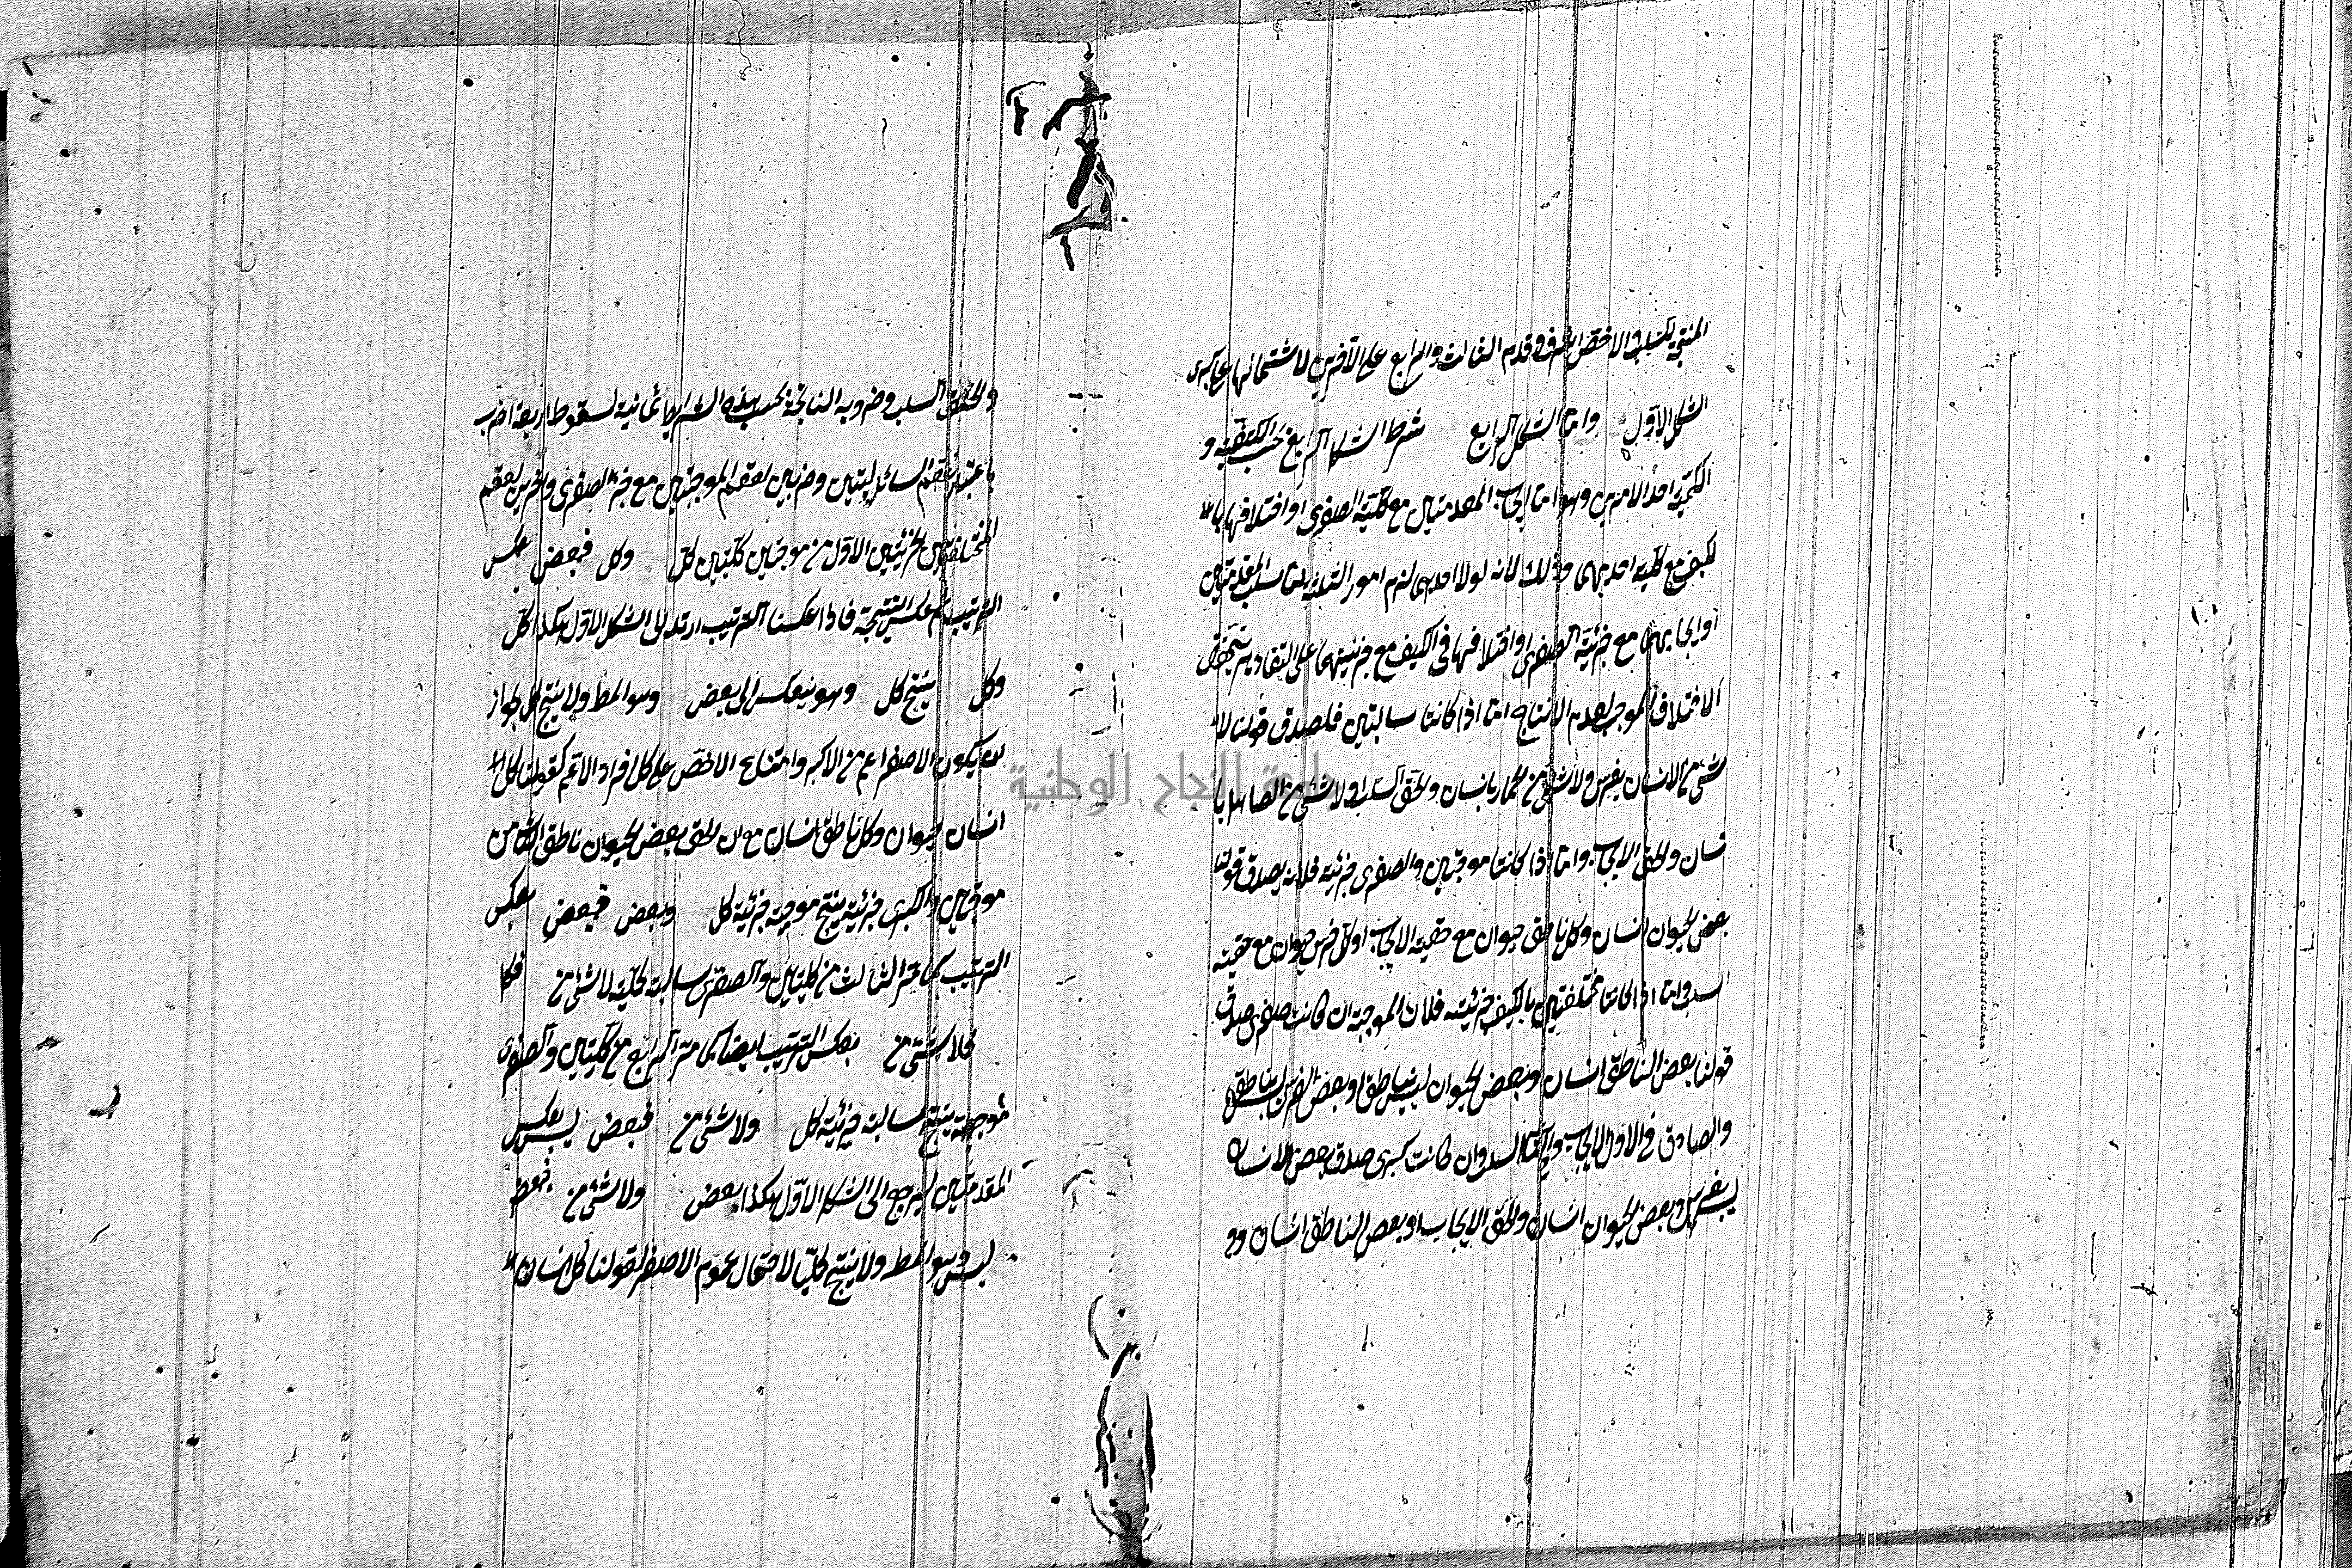 المنتج للسلب والاخص اشرف وقدم الثالث والرابع على الآخرين لاشتمالهما على كبرى
الشكل الاول واما الشكل الرابع شرط الشكل الرابع بحسب الكيفية و
الكمية احد الامرين وهو اما ايجاب المقدمتين مع كلية الصغرى او اختلافهما با
لكيف مع كلية احديهما وذلك لانه لولا احديهما لزم امور الثلثة اما سلب المقدمتين
او ايجابهما مع جزئية الصغرى او اختلافهما فى الكيف مع جزئيتهما على التقادير يتحقق
الاختلاف الموجب لعدم الانتاج اما اذا كانتا سالبتين فلصدق قولنا لا
شئ من الانسان بفرس ولا شئ من الحمار بانسان والحق السلب او لا شئ من الصاهل با
نسان والحق الايجاب واما اذا كانتا موجبتين والصغرى جزئية فلانه يصدق قولنا
بعض الحيوان انسان وكل ناطق حيوان مع حقية الايجاب او كل فرس حيوان مع حقية
السلب واما اذا كانتا مختلفتين بالكيف جزئيته فلان الموجبة ان كانت صغرى صدق
قولنا بعض الناطق انسان وبعض الحيوان ليس بناطق او بعض الفرس ليس بناطق
والصادق فى الاول الايجاب والسلب وان كانت كبرى صدق بعض الانسان
ليس بفرس وبعض الحيوان انسان والحق الايجاب او بعض الناطق انسان و
والحق السلب وضروبه الناتجة بحسب هذه الشرايط ثمانية لسقوط اربعة اضرب
باعتبار عقم السالبتين وضربين لعقم الموجبتين مع جزئية الصغرى وآخرين لعقم
المختلفتين الجزئيتين الاول من موجبتين كليتين كل وكل فبعض بعكس
الترتيب ثم عكس النتيجة فاذا عكسنا الترتيب ارتد الى الشكل الاول هكذا كل
وكل ينتج كل وهو ينعكس الى بعض وهو المط ولا ينتج كل لجواز
ان يكون الاصغر اعم من الاكبر وامتناع الاخص على كل افراد الاعم كقولنا كل
انسان حيوان وكل ناطق انسان مع ان الحق بعض الحيوان ناطق الثانى من
موجبتين والكبرى جزئية ينتج موجبة جزئية كل وبعض فبعض بعكس
الترتيب كما مر الثالث من كليتين والصغرى سالبة كلية لا شئ من وكل
فلا شئ من بعكس الترتيب ايضا كما مر الرابع من كليتين والصغرى
موجبة ينتج سالبة جزئية كل ولا شئ من فبعض ليس بعكس
المقدمتين ليرجع الى الشكل الاول هكذا بعض ولا شئ من فبعض
ليس وهو المط ولا ينتج كليا لاحتمال عموم الاصغر لقولنا كل انسان
جامعة النجاح الوطنية